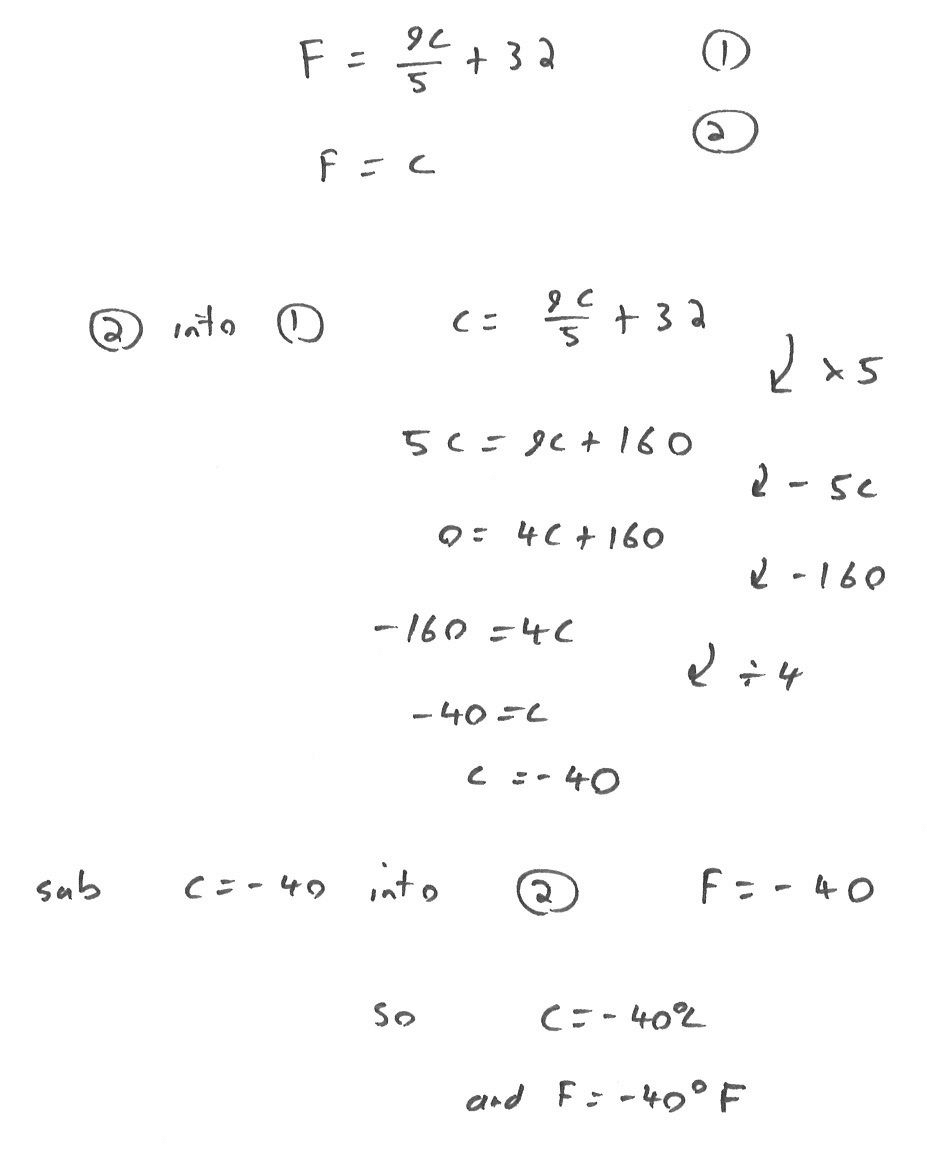 F = 9C/5 + 32 ①
②
F = C
② into ① C = 9C/5 + 32
↙ × 5
5C = 9C + 160
↙ - 5C
0 = 4C + 160
↙ - 160
-160 = 4C
↙ ÷ 4
-40 = C
C = -40
sub C = -40 into ② F = -40
so C = -40°C
and F = -40°F